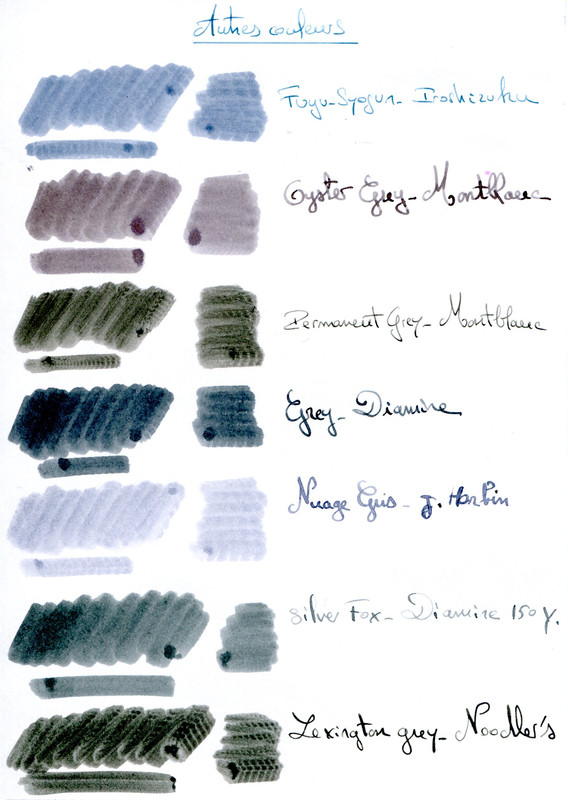 Autres couleurs
Fuyu-Syogun - Iroshizuku
Oyster Grey - Montblanc
Permanent Grey - Montblanc
Grey - Diamine
Nuage Gris - J. Herbin
Silver Fox - Diamine 150 Y.
Lexington grey - Noodler's